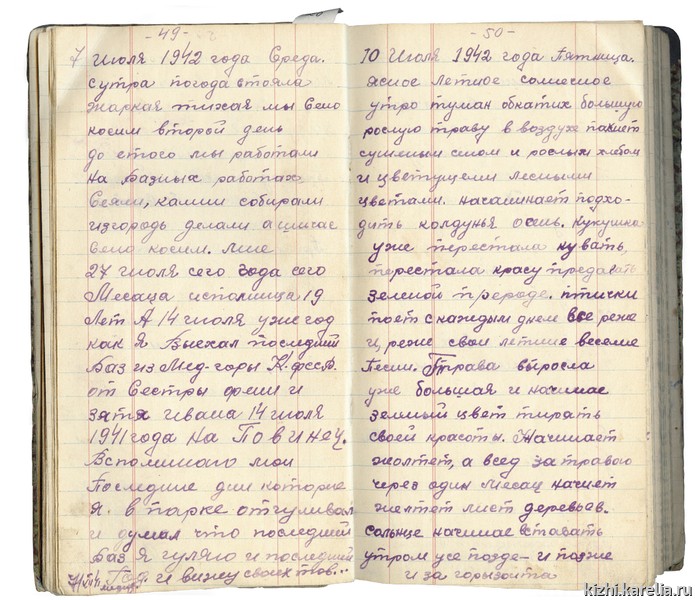 -49-
7 Июля 1942 года Среда.
Сутра погода стояла
жаркая тихая мы Сено
косим второй день
до етого мы работали
на разных работах,
Сеяли, камни собирали
изгородь делали а сичас
сено косим. мне
27 июля сего года сего
Месаца исполница 19
Лет А 14 июля уже год
как я Выехал последний
Раз из Мед-горы К.фссР.
от Сестры фени и
зятя ивана 14 июля
1941 года на Повинец.
Вспоминаю мои
Последние дни которые
я. в парке отгуливал
и думал что последний
Раз я гуляю и последний
Год. и вижу своих тов...
-50-
10 Июля 1942 года Пятница.
ясное летное солнесное
утро туман обкатил большую
рослую траву в воздухе пахнет
сушеным сном и рослым хлебом
и цветущеми лесными
цветами. насинает подхо-
дить колдунья осень. кукушка
уже перестала кувать,
перестала красу предавать
зеленой прероде. птички
поет с каждым днем все реже
и, реже свои летние веселые
Песни. Трава выросла
уже большая и начинае
земный цвет тирать
своей красоты. Жачинает
жолтет, а всед за травою
через один Месац начнет
желтет лист деревьев.
солнце начинае вставать
утром усе позде- и позже
и за горызонта
kizhi.karelia.ru